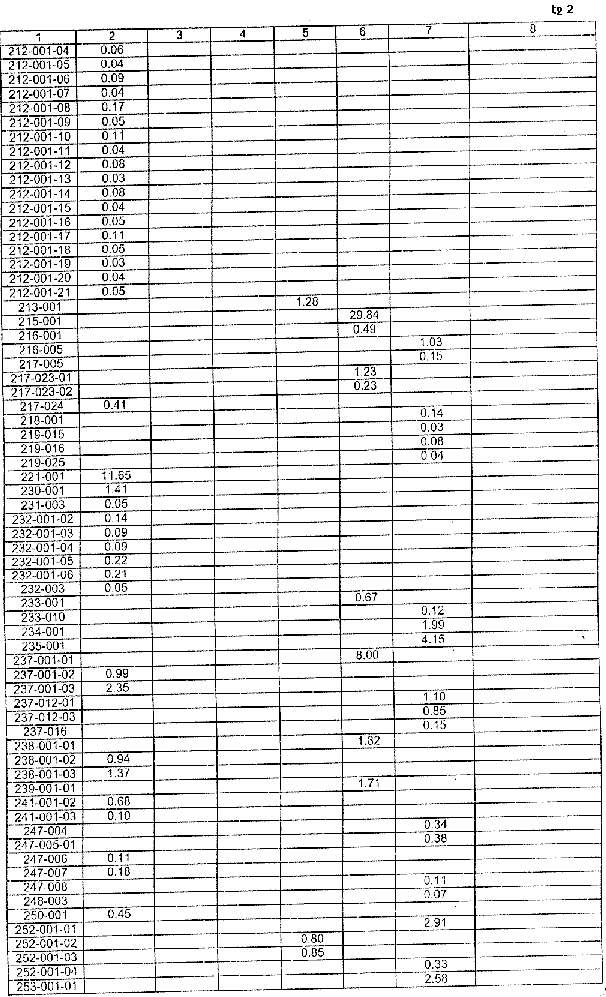 tg 2
1 2 3 4 5 6 7 8
212-001-04 0.06
212-001-05 0.04
212-001-06 0.09
212-001-07 0.04
212-001-08 0.17
212-001-09 0.05
212-001-10 0.11
212-001-11 0.04
212-001-12 0.08
212-001-13 0.03
212-001-14 0.08
212-001-15 0.04
212-001-16 0.05
212-001-17 0.11
212-001-18 0.05
212-001-19 0.03
212-001-20 0.04
212-001-21 0.05
213-001 1.28
215-001 29.84
216-001 0.49
216-005 1.03
217-005 0.15
217-023-01 1.23
217-023-02 0.23
217-024 0.41
218-001 0.14
219-015 0.03
219-016 0.08
219-025 0.04
221-001 11.65
230-001 1.41
231-003 0.05
232-001-02 0.14
232-001-03 0.09
232-001-04 0.09
232-001-05 0.22
232-001-06 0.21
232-003 0.05
233-001 0.67
233-010 0.12
234-001 1.99
235-001 4.15
237-001-01 8.00
237-001-02 0.99
237-001-03 2.35
237-012-01 1.10
237-012-03 0.85
237-016 0.15
238-001-01 1.62
238-001-02 0.94
238-001-03 1.37
239-001-01 1.71
241-001-02 0.68
241-001-03 0.10
247-004 0.34
247-005-01 0.38
247-006 0.11
247-007 0.18
247-008 0.11
248-003 0.07
250-001 0.45
252-001-01 2.91
252-001-02 0.80
252-001-03 0.85
252-001-04 0.33
253-001-01 2.58